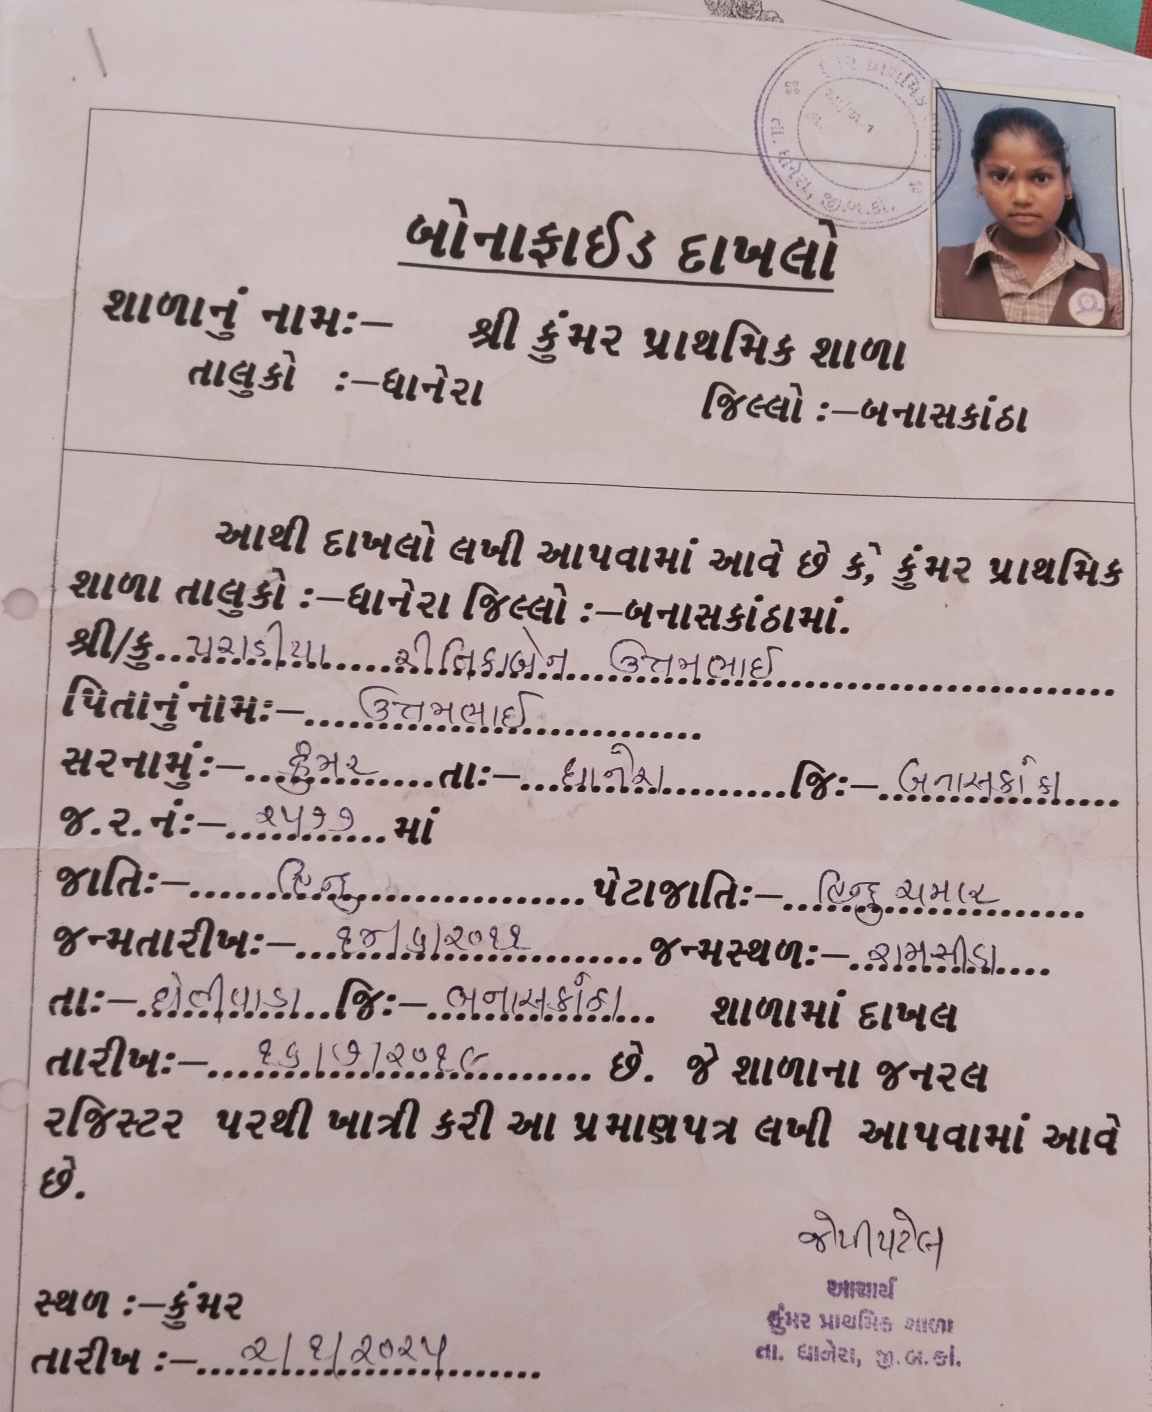 બોનાફાઈડ દાખલો
શાળાનું નામઃ– શ્રી કુંમર પ્રાથમિક શાળા
તાલુકો :–ધાનેરા જિલ્લો :–બનાસકાંઠા
આથી દાખલો લખી આપવામાં આવે છે કે, કુંમર પ્રાથમિક
શાળા તાલુકો :–ધાનેરા જિલ્લો :–બનાસકાંઠામાં.
શ્રી/કુ. પરાડીયા રીતિકાબેન ઉત્તમભાઈ
પિતાનું નામઃ– ઉત્તમભાઈ
સરનામું:– કુંમર તાઃ– ધાનેરા જિઃ– બનાસકાંઠા
જ.ર.નંઃ– ૨૫૭૭ માં
જાતિઃ– હિન્દુ પેટાજાતિઃ– હિન્દુ ચમાર
જન્મતારીખઃ– ૧૪/૫/૨૦૧૧ જન્મસ્થળઃ– રામસીડા
તાઃ– જિઃ– બનાસકાંઠા શાળામાં દાખલ
તારીખઃ– ૧૬/૭/૨૦૧૯ છે. જે શાળાના જનરલ
રજિસ્ટર પરથી ખાત્રી કરી આ પ્રમાણપત્ર લખી આપવામાં આવે
છે.
જોપીપટેલ
આચાર્ય
કુંમર પ્રાથમિક શાળા
તા. ધાનેરા, જી.બ.કાં.
સ્થળ :–કુંમર
તારીખ :– ૨/૧/૨૦૨૫